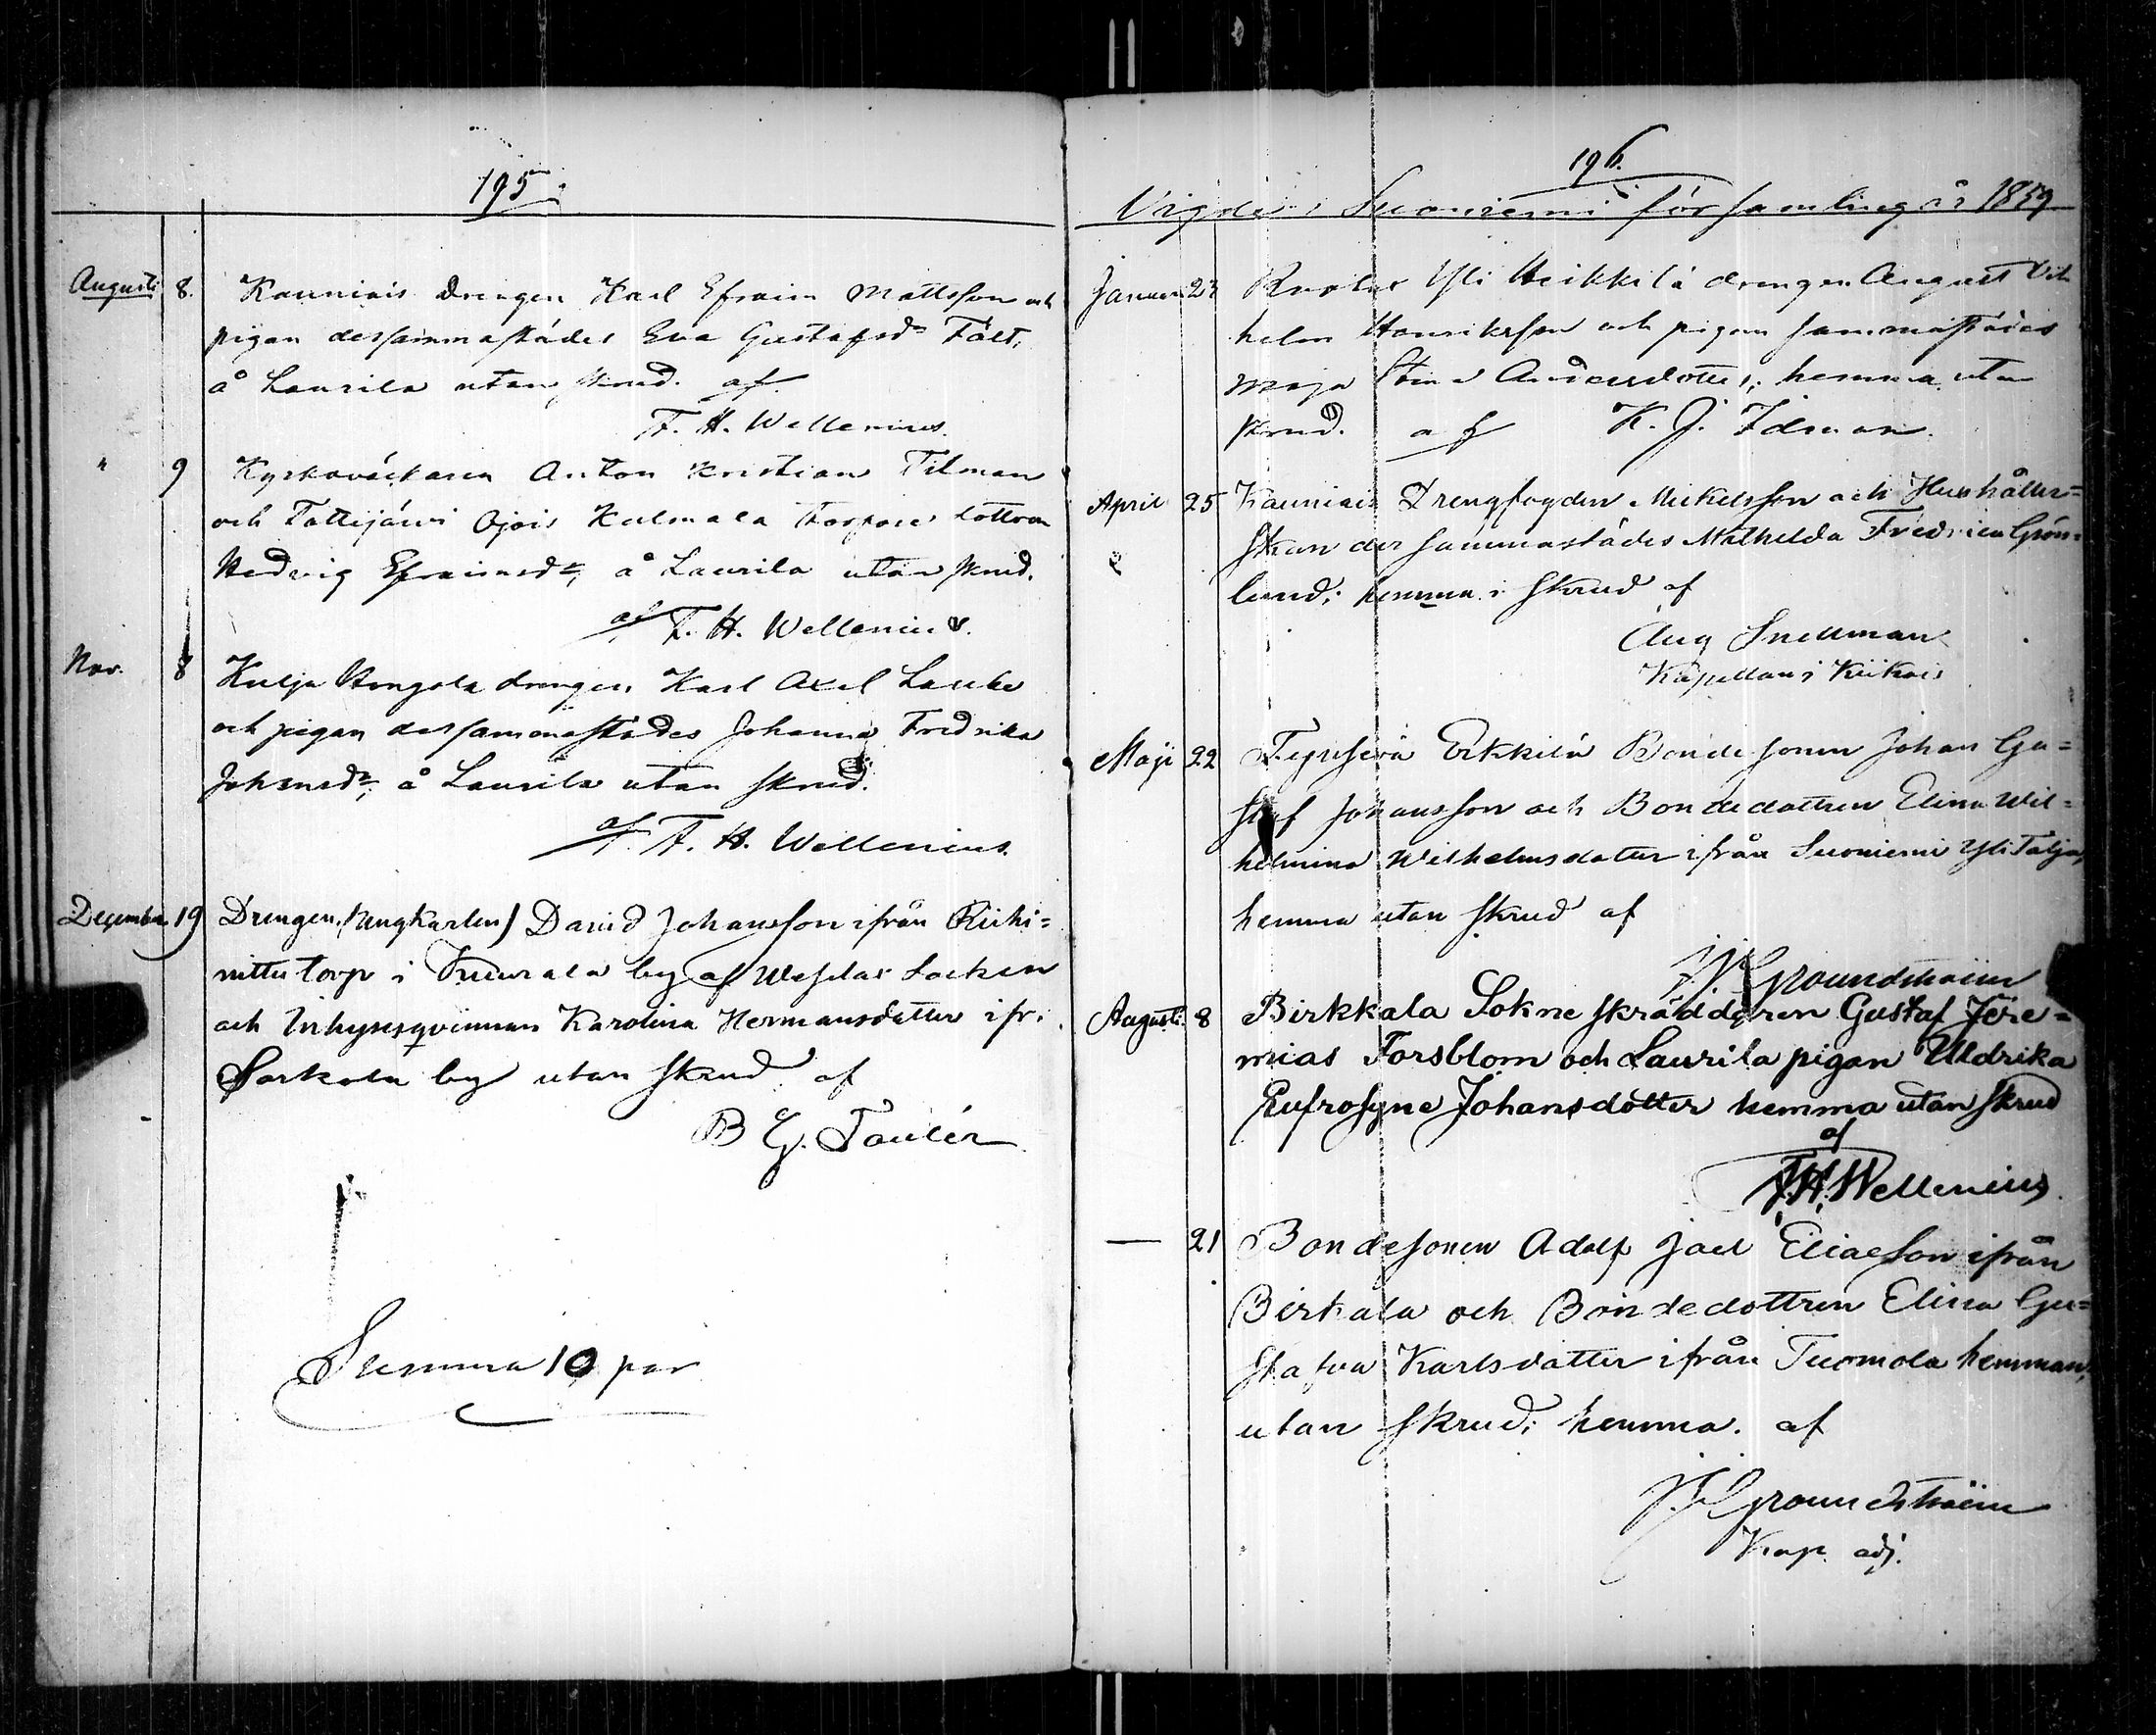 195.
Augusti 8. Kauniais drengen Karl Efraim Mattsson och
pigan dessammastädes Eva Gustafsdr Fält,
å Laurila utan skrud. af
F. H. Wellenius.
" 9 Kyrkoväktaren Anton Kristian Tilman
och Tottijärvi Ojois Kulmala Torpare dottren
Hedvig Efraimsdr, å Laurila utan skrud.
af F. H. Wellenius.
Nov. 8 Kulju Hongola drengen Karl Axel
och pigan dessammastädes Johanna Fredrika
Johansdr, å Laurila utan skrud.
af F. H. Wellenius.
December 19 Drengen (ungkarlen) David Johansson ifrån Riihi=
nittu torp i by af Wesilax Socken
och Inhysesqvinnan Karolina Hermansdotter ifr.
Sarkola by utan skrud af
B G. Taulér
Summa 10 par
196.
Vigde i Suoniemi församling år 1859
Januari 23 Yli Heikkilä drengen August Vil
helm Henriksson och pigan sammastädes
Maja Stina Andersdotter, hemma utan
skrud. af K. J. Idman.
April 25 Kauniais Drengfogden Mickelsson och Hushåller=
skan der sammastädes Mathilda Fredrica Grön=
lund; hemma i skrud af
Aug Snellman
Kapellan i Kiikois
Maji 22 Erkkilä Bondesonen Johan Gu=
staf Johansson och Bondedottren Elina Wil=
helmina Wilhelmsdotter ifrån Suoniemi Yli Talja,
hemma utan skrud af
J. Groundstroem
Augusti 8 Birkkala Sokne skräddaren Gustaf Jere=
mias Forsblom och Laurila pigan Uldrika
Eufrosyne Johansdotter hemma utan skrud
af
F. H. Wellenius.
— 21 Bondesonen Adolf Joel Eliaeson ifrån
Birkala och Bondedottren Elina Gu=
stafva Karlsdotter ifrån Tuomola hemman,
utan skrud; hemma. af
J. Groundstroem
Kap. adj.